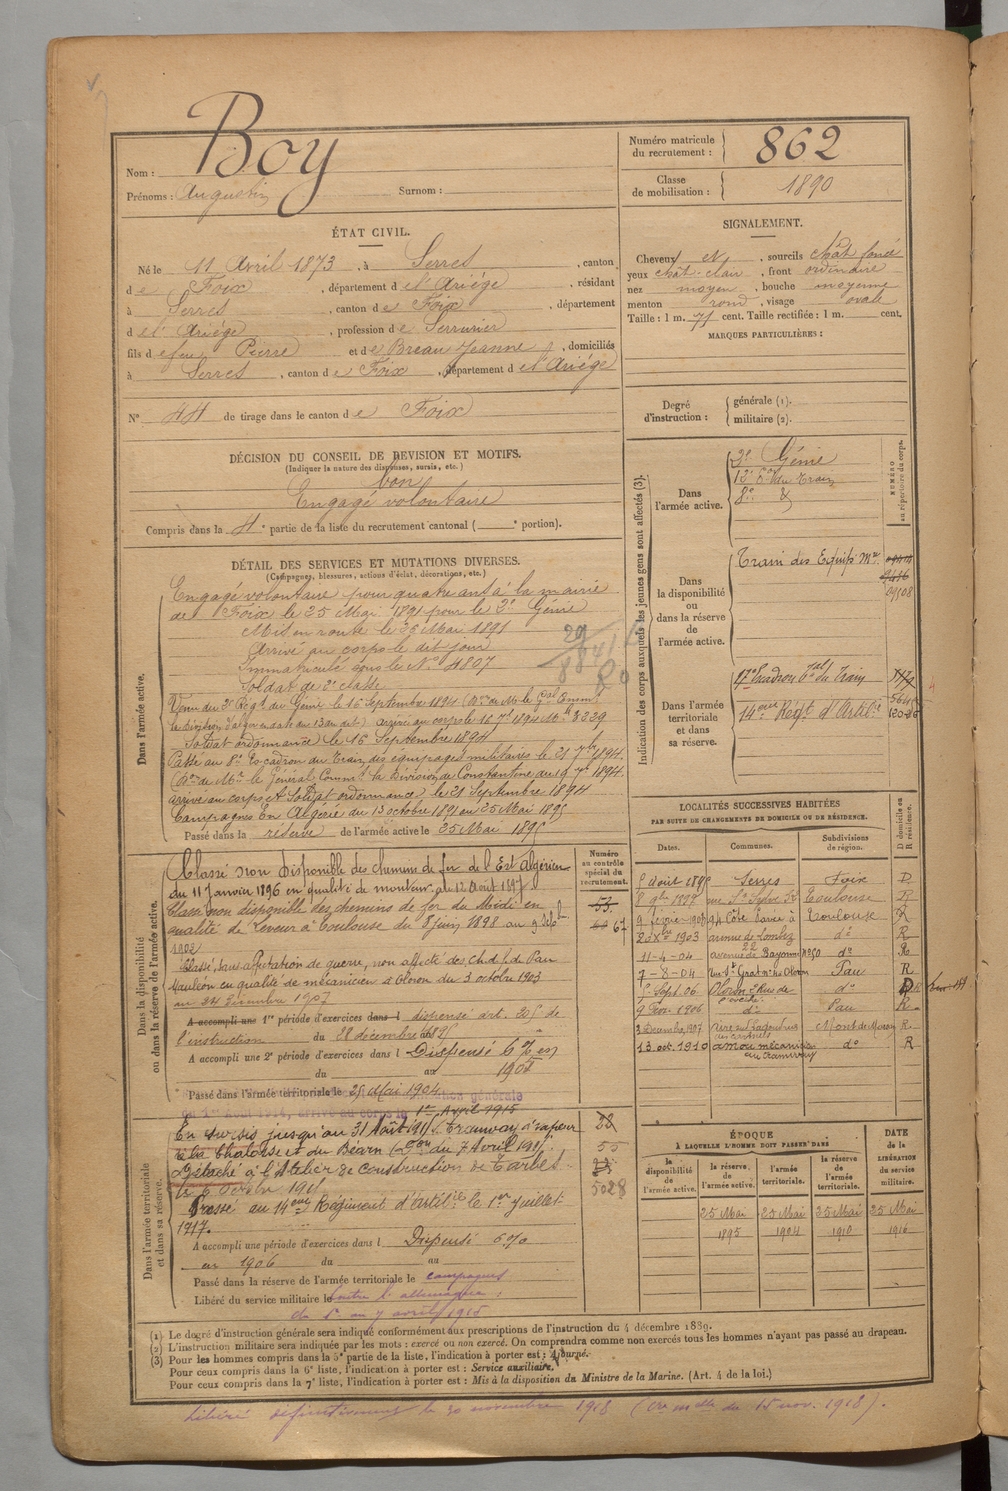 Nom : Boy
Prénoms : Augustin Surnom :
Numéro matricule du recrutement : 862
Classe de mobilisation : 1890
ÉTAT CIVIL.
Né le 11 Avril 1873, à Serres, canton
de Foix, département de l'Ariége, résidant
à Serres, canton de Foix, département
de l'Ariége, profession de Serrurier
fils de feu Pierre et de Breau Jeanne, domiciliés
à Serres, canton de Foix, département de l'Ariége
N° 44 de tirage dans le canton de Foix
SIGNALEMENT.
Cheveux et, sourcils chât foncé
yeux chât-clair, front ordinaire
nez moyen, bouche moyenne
menton rond, visage ovale
Taille : 1 m. 71 cent. Taille rectifiée : 1 m. cent.
MARQUES PARTICULIÈRES :
Degré d'instruction : générale (1).
militaire (2).
DÉCISION DU CONSEIL DE REVISION ET MOTIFS.
(Indiquer la nature des dispenses, sursis, etc.)
bon
Engagé volontaire
Compris dans la 4e partie de la liste du recrutement cantonal ( e portion).
DÉTAIL DES SERVICES ET MUTATIONS DIVERSES.
(Campagnes, blessures, actions d'éclat, décorations, etc.)
Dans l'armée active.
Engagé volontaire pour quatre ans à la mairie
de Foix le 25 Mai 1891 pour le 2e Génie
Mis en route le 26 Mai 1891
Arrivé au corps le dit jour
Immatriculé sous le N° 4807
Soldat de 2e classe
Venu du 2e Régt du Génie le 16 Septembre 1894
arrivé au corps le 16 7bre 1894 Mle 3229
Soldat ordonnance le 16 Septembre 1894
Passé au 8e Escadron du Train des équipages militaires le 21 7bre 1894.
de Mr le Général Commt la Division de Constantine du 19 7bre 1894.
arrivé au corps et Soldat ordonnance le 21 Septembre 1894
Campagnes En Algérie du 13 octobre 1891 au 25 Mai 1895
Passé dans la réserve de l'armée active le 25 Mai 1895
Indication des corps auxquels les jeunes gens sont affectés (3).
NUMÉRO au répertoire du corps.
Dans l'armée active.
2e Génie
12e Eon du Train
8e
Dans la disponibilité ou dans la réserve de l'armée active.
Train des Equip. Mres
09508
Dans l'armée territoriale et dans sa réserve.
17e Escadron Tal du Train
14eme Régt d'Artie
Dans la disponibilité ou dans la réserve de l'armée active.
Numéro au contrôle spécial du recrutement.
Classé non disponible des chemins de fer de l'Est Algérien
du 11 Janvier 1896 en qualité de monteur au 12 Août 1897
Classé non disponible des chemins de fer du Midi en
qualité de Leveur à Toulouse du 8 juin 1898 au 9 Sepbre
1902
67
Classé, sans affectation de guerre, non affecté des ch. d. f. de Pau
Mauléon en qualité de mécanicien à Oloron du 3 octobre 1903
au 24 Décembre 1907
A accompli une 1re période d'exercices dans l dispensé art. 205 de
l'instruction du 28 décembre 1895
A accompli une 2e période d'exercices dans l Dispensé 6% en
du au 1901
Passé dans l'armée territoriale le 25 Mai 1904
générale
arrivé au corps le 1er Avril 1915
Dans l'armée territoriale et dans sa réserve.
En sursis jusqu'au 31 Août 1915 Tramway à vapeur
de la Chalosse et du Béarn (du 7 Avril 1915)
Détaché à l'Atelier de Construction de Tarbes
le 6 Octobre 1915
Passé au 14eme Régiment d'Artie le 1er Juillet
1917.
55
5028
A accompli une période d'exercices dans l Dispensé 6%
en 1906 du au
Passé dans la réserve de l'armée territoriale le campagnes
Libéré du service militaire le contre l'allemagne :
du 1er au 7 avril 1915
LOCALITÉS SUCCESSIVES HABITÉES
PAR SUITE DE CHANGEMENTS DE DOMICILE OU DE RÉSIDENCE.
Dates. Communes. Subdivisions de région. D domicile ou R résidence.
août 1895 Serres Foix D
8 9bre 1897 Toulouse R
9 février 1903 Toulouse R
2 Xbre 1903 avenue de Lombez do R
11-4-04 avenue de Bayonne No 50 do R
7-8-04 Oloron Pau R
Sept. 06 Oloron Rue de do R
9 Févr. 1906 do Pau R
3 Décembre 1907 Mont de Marsan R
13 oct. 1910 mécanicien au tramway do R
ÉPOQUE
À LAQUELLE L'HOMME DOIT PASSER DANS
DATE de la LIBÉRATION du service militaire.
la disponibilité de l'armée active. la réserve de l'armée active. l'armée territoriale. la réserve de l'armée territoriale.
25 Mai 25 Mai 25 Mai 25 Mai
1895 1904 1910 1916
(1) Le degré d'instruction générale sera indiqué conformément aux prescriptions de l'instruction du 4 décembre 1889.
(2) L'instruction militaire sera indiquée par les mots : exercé ou non exercé. On comprendra comme non exercés tous les hommes n'ayant pas passé au drapeau.
(3) Pour les hommes compris dans la 5e partie de la liste, l'indication à porter est : Ajourné.
Pour ceux compris dans la 6e liste, l'indication à porter est : Service auxiliaire.
Pour ceux compris dans la 7e liste, l'indication à porter est : Mis à la disposition du Ministre de la Marine. (Art. 4 de la loi.)
Libéré définitivement le 30 novembre 1918 (Cre mlle du 15 nov. 1918).